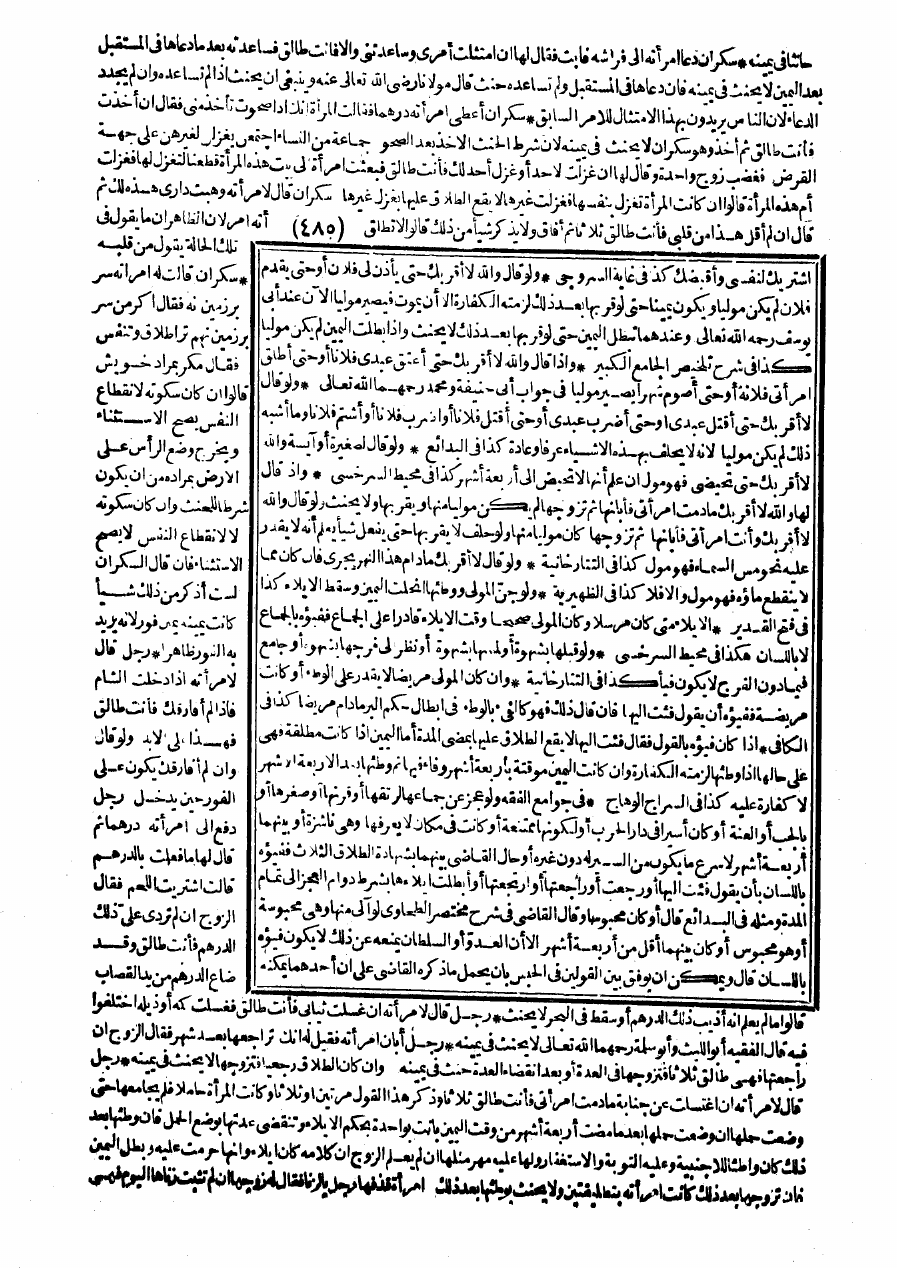 حانثا فى يمينه * سكران دعا امرأته الى فراشه فابت فقال لها ان امتثلت أمرى وساعدتنى والا فانت طالق فساعدته بعد مادعاها فى المستقبل
بعد اليمين لا يحنث فى يمينه فان دعاها فى المستقبل ولم تساعده حنث قال مولانا رضى الله تعالى عنه وينبغى ان يحنث اذا لم تساعده وان لم يجدد
الدعاء لان الناس يريدون بهذا الامتثال للامر السابق * سكران أعطى امرأته درهما فقالت المرأة انك اذا صحوت تأخذه منى فقال ان أخذت
فأنت طالق ثم أخذ وهو سكران لا يحنث فى يمينه لان شرط الحنث الاخذ بعد الصحو جماعة من النساء اجتمعن يغزلن لغيرهن على جهة
القرض فغضب زوج واحدة وقال لها ان غزلت لاحد أو غزل أحد لك فأنت طالق فبعثت امرأة الى بيت هذه المرأة قطعنا لتغزل لها فغزلت
أم هذه المرأة قالوا ان كانت المرأة تغزل بنفسها فغزلت غيرها لا يقع الطلاق عليها بغزل غيرها سكران قال لامرأته وهبت دارى هذه لك ثم
قال ان لم أقل هذا من قلبى فأنت طالق ثلاثا ثم أفاق ولا يذكر شيأ من ذلك قالوا لا تطلق (٤٨٥) أنه امر لان الظاهر ان ما يقول فى
تلك الحالة يقول من قلبه
* سكران قالت له امرأته سر
برزمين نه فقال اكر من سر
برزمين نهم ترا طلاق وتنفس
فقال مكر بمراد خويش
قالوا ان كان سكوته لانقطاع
النفس يصح الاستثناء
ويخرج وضع الرأس على
الارض بمراده من ان يكون
شرطا للحنث وان كان سكوته
لا لانقطاع النفس لا يصح
الاستثناء فان قال السكران
لست أذكر من ذلك شيأ
كانت يمينه يمين فور لانه يريد
به الفور ظاهرا * رجل قال
لامرأته اذا دخلت الشام
فاذا لم أفارقك فأنت طالق
فهذا الى الابد ولو قال
وان لم أفارقك يكون على
الفور حين يدخل رجل
دفع الى امرأته درهما ثم
قال لها ما فعلت بالدرهم
قالت اشتريت اللحم فقال
الزوج ان لم تردى على ذلك
الدرهم فأنت طالق وقد
ضاع الدرهم من يد القصاب
اشتريك لنفسى وأقبضك كذا فى غاية السروجى * ولو قال والله لا أقربك حتى يأذن لى فلان أو حتى يقدم
فلان لم يكن موليا ويكون يمينا حتى لو قربها بعد ذلك لزمته الكفارة الا أن يموت فيصير موليا الآن عند أبى
يوسف رحمه الله تعالى وعندهما تبطل اليمين حتى لو قربها بعد ذلك لا يحنث واذا بطلت اليمين لم يكن موليا
كذا فى شرح تلخيص الجامع الكبير * واذا قال والله لا أقربك حتى أعتق عبدى فلانا أو حتى أطلق
امرأتى فلانة أو حتى أصوم شهرا يصير موليا فى جواب أبى حنيفة ومحمد رحمهما الله تعالى * ولو قال
لا أقربك حتى أقتل عبدى أو حتى أضرب عبدى أو حتى أقتل فلانا أو اضرب فلانا أو أشتم فلانا وما أشبه
ذلك لم يكن موليا لانه لا يحلف بهذه الاشياء عرفا وعادة كذا فى البدائع * ولو قال لصغيرة أو آيسة والله
لا أقربك حتى تحيضى فهو مول ان علم أنها لا تحيض الى أربعة أشهر كذا فى محيط السرخسى * واذا قال
لها والله لا أقربك مادمت امرأتى فأبانها ثم تزوجها لم يكن موليا منها ويقربها ولا يحنث ولو قال والله
لا أقربك وأنت امرأتى فأبانها ثم تزوجها كان موليا منها ولو حلف لا يقربها حتى يفعل شيأ يعلم أنه لا يقدر
عليه نحو مس السماء فهو مول كذا فى التتارخانية * ولو قال لا أقربك مادام هذا النهر يجرى فان كان مما
لا ينقطع ماؤه فهو مول والا فلا كذا فى الظهيرية * ولو جن المولى ووطئها انحلت اليمين وسقط الايلاء كذا
فى فتح القدير * الايلاء متى كان مرسلا وكان المولى صحيحا وقت الايلاء قادرا على الجماع ففيؤه بالجماع
لا باللسان هكذا فى محيط السرخسى * ولو قبلها بشهوة أو لمسها بشهوة أو نظر الى فرجها بشهوة أو جامع
فيما دون الفرج لا يكون فيأ كذا فى التتارخانية * وان كان المولى مريضا لا يقدر على الوطء أو كانت
مريضة ففيؤه أن يقول فئت اليها فان قال ذلك فهو كالفىء بالوطء فى ابطال حكم البر مادام مريضا كذا فى
الكافى * اذا كان فيؤه بالقول فقال فئت اليها لا يقع الطلاق عليها بمضى المدة أما اليمين اذا كانت مطلقة فهى
على حالها اذا وطئها لزمته الكفارة وان كانت اليمين موقتة بأربعة أشهر وفاء فيها ثم وطئها بعد الاربعة الاشهر
لا كفارة عليه كذا فى السراج الوهاج * فى جوامع الفقه ولو عجز عن جماعها لرتقها أو قرنها أو صغرها أو
بالجب أو العنة أو كان أسيرا فى دار الحرب أو لكونها ممتنعة أو كانت فى مكان لا يعرفها وهى ناشزة أو بينهما
أربعة أشهر لاسرع ما يكون من السير له دون غيره أو حال القاضى بينهما بشهادة الطلاق الثلاث ففيؤه
باللسان بأن يقول فئت اليها أو رجعت أو راجعتها أو ارتجعتها أو أبطلت ايلاءها بشرط دوام العجز الى تمام
المدة ومثله فى البدائع قال أو كان محبوسا وقال القاضى فى شرح مختصر الطحاوى لو آلى منها وهى محبوسة
أو هو محبوس أو كان بينهما أقل من أربعة أشهر الا أن العدو أو السلطان يمنعه عن ذلك لا يكون فيؤه
باللسان قال ويمكن ان يوفق بين القولين فى الحبس بان يحمل ما ذكره القاضى على ان أحدهما يمكنه
قالوا ما لم يعلم انه أذيب ذلك الدرهم أو سقط فى البحر لا يحنث * رجل قال لامرأته ان غسلت ثيابى فأنت طالق فغسلت كمه أو ذيله اختلفوا
فيه قال الفقيه أبو الليث وأبو سلمة رحمهما الله تعالى لا يحنث فى يمينه * رجل أبان امرأته فقيل له انك تراجعها بعد شهر فقال الزوج ان
راجعتها فهى طالق ثلاثا فتزوجها فى العدة أو بعد انقضاء العدة حنث فى يمينه وان كان الطلاق رجعيا فتزوجها لا يحنث فى يمينه * رجل
قال لامرأته ان اغتسلت عن جنابة مادمت امرأتى فأنت طالق ثلاثا وذكر هذا القول مرتين أو ثلاثا وكانت المرأة حاملا فلم يجامعها حتى
وضعت حملها ان وضعت حملها بعد ما مضت أربعة أشهر من وقت اليمين بانت بواحدة بحكم الايلاء وتنقضى عدتها بوضع الحمل فان وطئها بعد
ذلك كان واطئا للاجنبية وعليه التوبة والاستغفار ولها عليه مهر مثلها ان لم يعلم الزوج ان كلامه كان ايلاء وانها حرمت عليه وبطل اليمين
فان تزوجها بعد ذلك كانت امرأته بتطليقتين ولا يحنث بوطئها بعد ذلك امرأة قذفها رجل بالزنا فقال لها زوجها ان لم تثبت زناها اليوم فهى